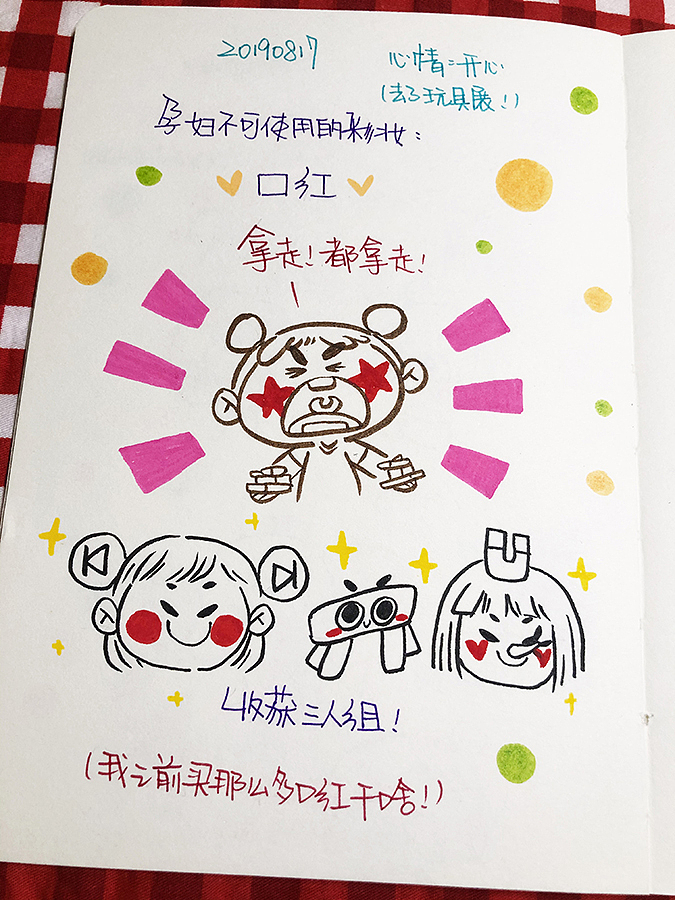 20190817
心情=开心
(去了玩具展!)
孕妇不可使用的彩妆:
口红
拿走!都拿走!
收获三人组!
(我之前买那么多口红干啥!)